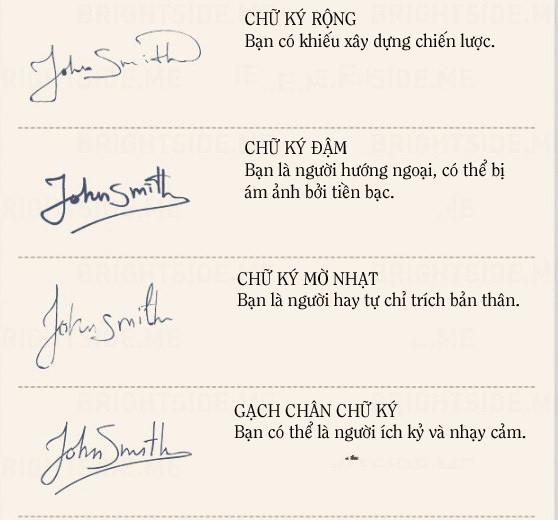 CHỮ KÝ RỘNG
Bạn có khiếu xây dựng chiến lược.
John Smith
CHỮ KÝ ĐẬM
Bạn là người hướng ngoại, có thể bị
ám ảnh bởi tiền bạc.
John Smith
CHỮ KÝ MỜ NHẠT
Bạn là người hay tự chỉ trích bản thân.
John Smith
GẠCH CHÂN CHỮ KÝ
Bạn có thể là người ích kỷ và nhạy cảm.
John Smith
BRIGHTSIDE.ME